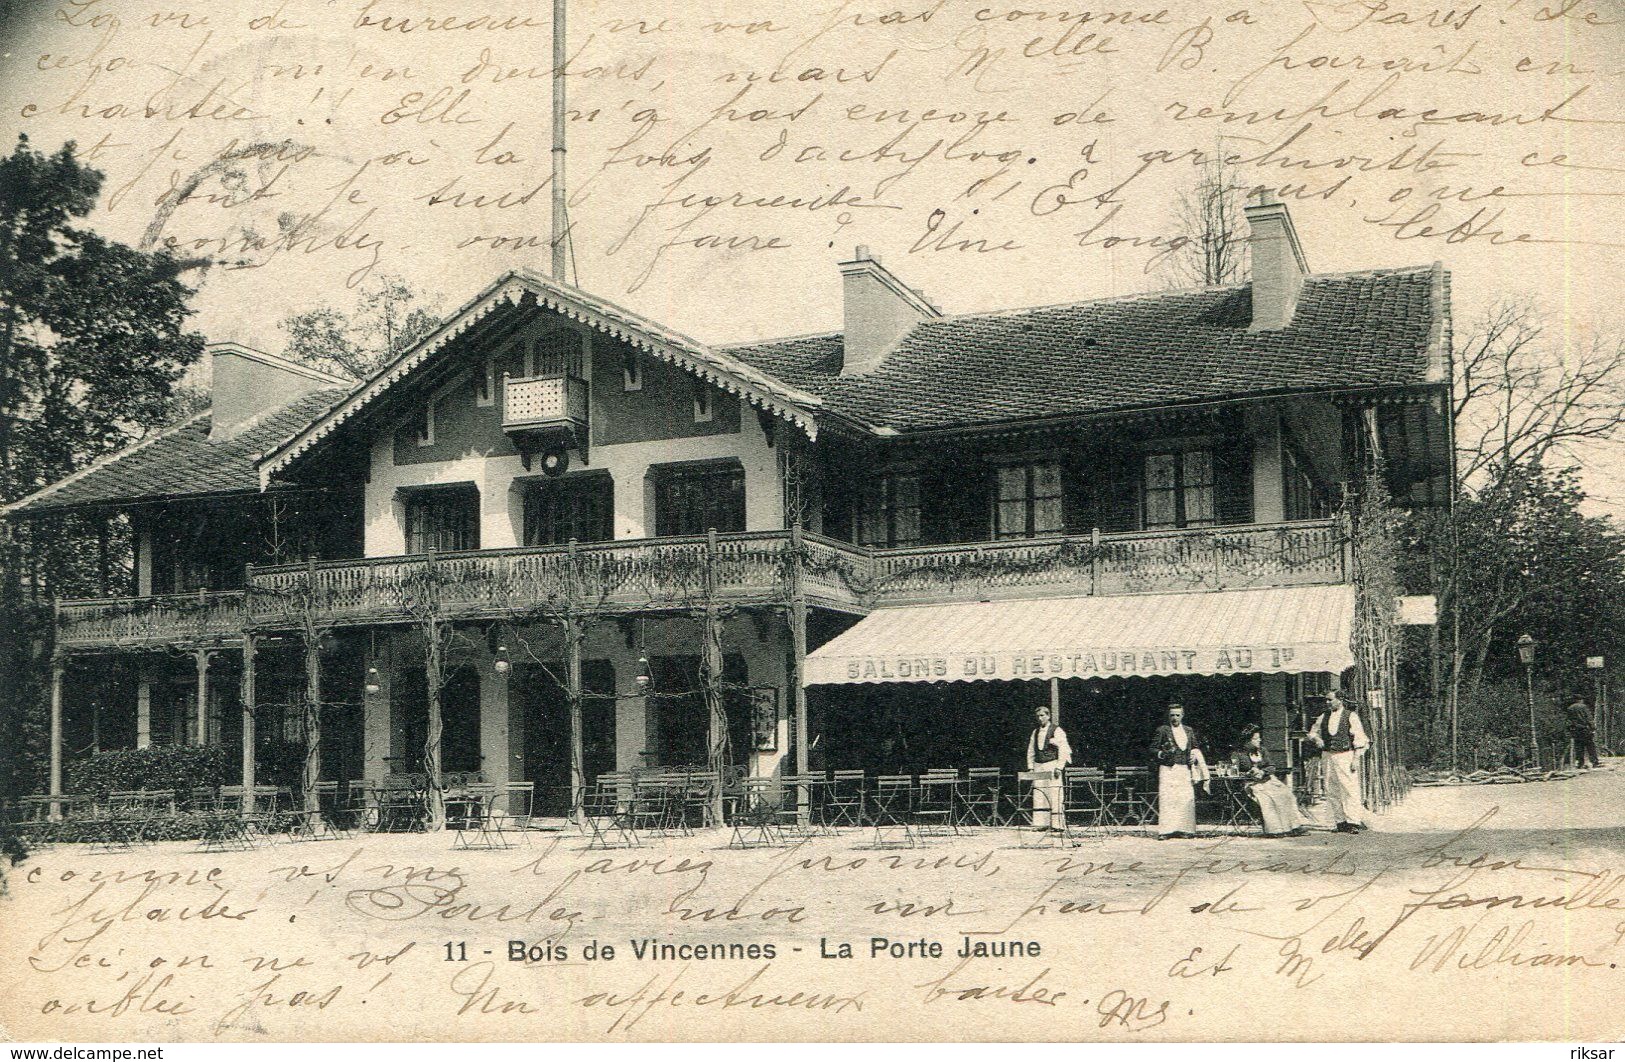 La vie de bureau ne va pas comme à Paris! De
cela je m'en doutais, mais Melle B. paraît en
chantée!! Elle n'a pas encore de remplaçant
et je suis à la fois dactylog. & archiviste ce
dont je suis furieuse! Et vous, que
comptez-vous faire? Une longue lettre
SALONS DU RESTAURANT AU 1er
comme vs me l'aviez promis, me ferait bien
plaisir! Parlez moi un peu de v/ famille
Ici, on ne vs
11 - Bois de Vincennes - La Porte Jaune
et Melle William.
oublie pas! Un affectueux baiser.
Ms.
www.delcampe.net
riksar